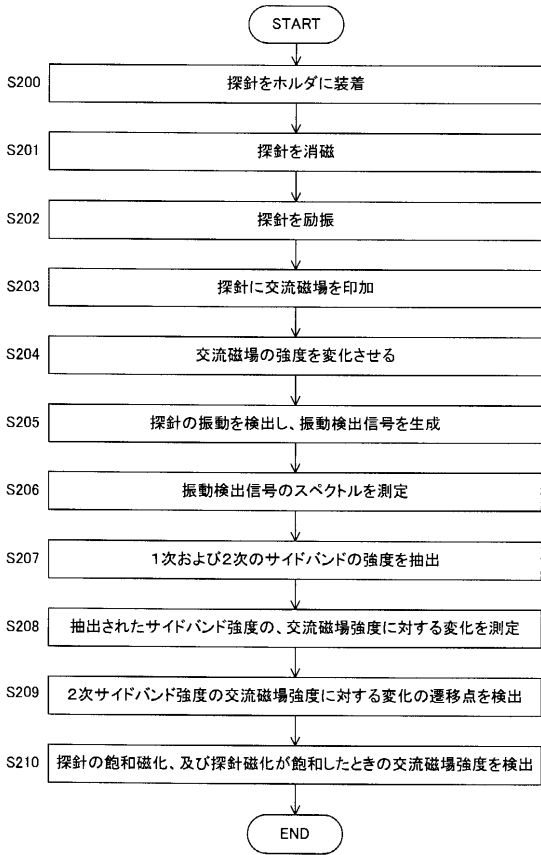 START
S200 探針をホルダに装着
S201 探針を消磁
S202 探針を励振
S203 探針に交流磁場を印加
S204 交流磁場の強度を変化させる
S205 探針の振動を検出し、振動検出信号を生成
S206 振動検出信号のスペクトルを測定
S207 1次および2次のサイドバンドの強度を抽出
S208 抽出されたサイドバンド強度の、交流磁場強度に対する変化を測定
S209 2次サイドバンド強度の交流磁場強度に対する変化の遷移点を検出
S210 探針の飽和磁化、及び探針磁化が飽和したときの交流磁場強度を検出
END